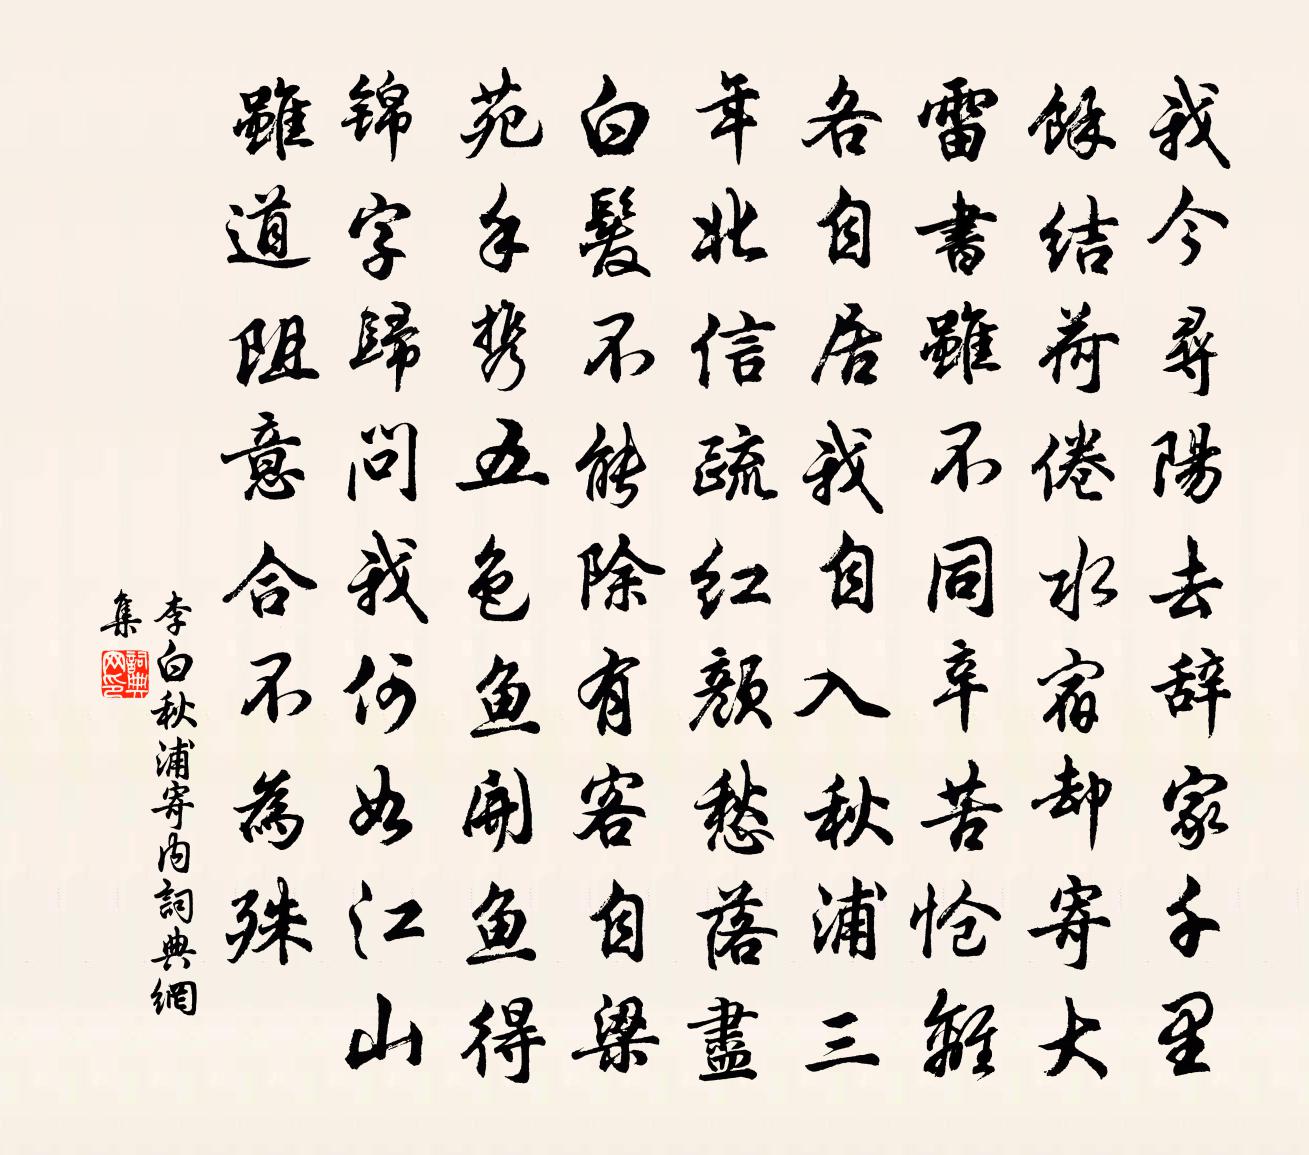 我今尋陽去辞家千里
餘结荷倦水宿却寄大
雷書雖不同辛苦怆離
各自居我自入秋浦三
年北信疏红顔愁落盡
白髮不能除有客自梁
苑手携五色鱼開鱼得
锦字歸問我何如江山
雖道阻意合不為殊
李白秋浦寄内詞典網
集
詞典
网印